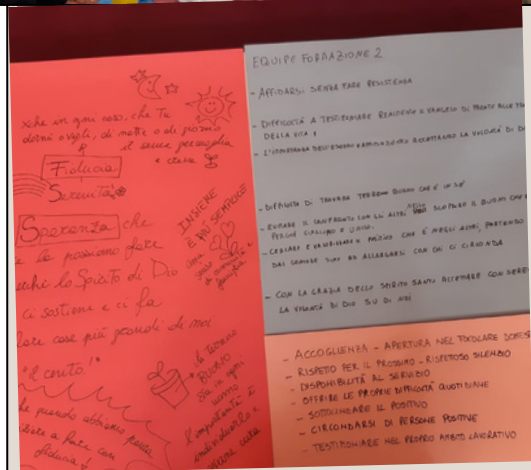 xché in ogni caso, che tu
dorma o vegli, di notte o di giorno
il seme germoglia
e cresce
Fiducia
Serenità
Speranza che
ce la possiamo fare
perché lo Spirito di Dio
ci sostiene e ci fa
fare cose più grandi di noi
"il cento!"
che quando abbiamo paura
fiducia
INSIEME
È PIÙ SEMPLICE
famiglia
terreno
BUONO
sia in ogni
uomo
l'importante è
EQUIPE FORMAZIONE 2
- AFFIDARSI SENZA FARE RESISTENZA
- DIFFICOLTÀ A TESTIMONIARE VANGELO DI FRONTE ALLE
DELLA VITA
- L'IMPORTANZA ACCETTANDO LA VOLONTÀ DI
- DIFFICOLTÀ DI TROVARE TERRENO BUONO CHE È IN SÉ
- EVITARE IL CONFRONTO CON GLI ALTRI IL BUONO CHE
PERCHÉ CIASCUNO È UNICO.
- CERCARE E VALORIZZARE CHE È NEGLI ALTRI, PARTENDO
DAL AD ALLARGARSI CON CHI CI CIRCONDA
- CON LA GRAZIA DELLO SPIRITO SANTO ACCETTARE CON
LA VOLONTÀ DI DIO SU DI NOI
- ACCOGLIENZA - APERTURA NEL FOCOLARE
- RISPETTO PER IL PROSSIMO - RISPETTOSO SILENZIO
- DISPONIBILITÀ AL SERVIZIO
- OFFRIRE LE PROPRIE DIFFICOLTÀ QUOTIDIANE
- SOTTOLINEARE IL POSITIVO
- CIRCONDARSI DI PERSONE POSITIVE
- TESTIMONIARE NEL PROPRIO AMBITO LAVORATIVO